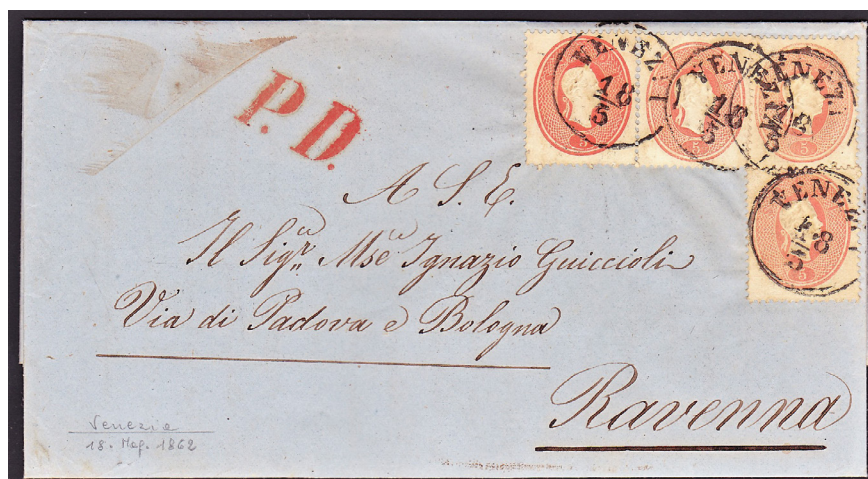 P.D.
VENEZIA
18/5
VENEZIA
18/5
VENEZIA
18/5
5
5
5
A S. E.
VENEZIA
18/5
5
Il Sigr. Mse Ignazio Guiccioli
Via di Padova e Bologna
Ravenna
Venezia
18. Mag. 1862